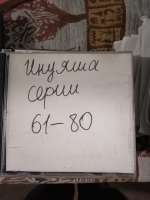 Инуяша
серии
61–80